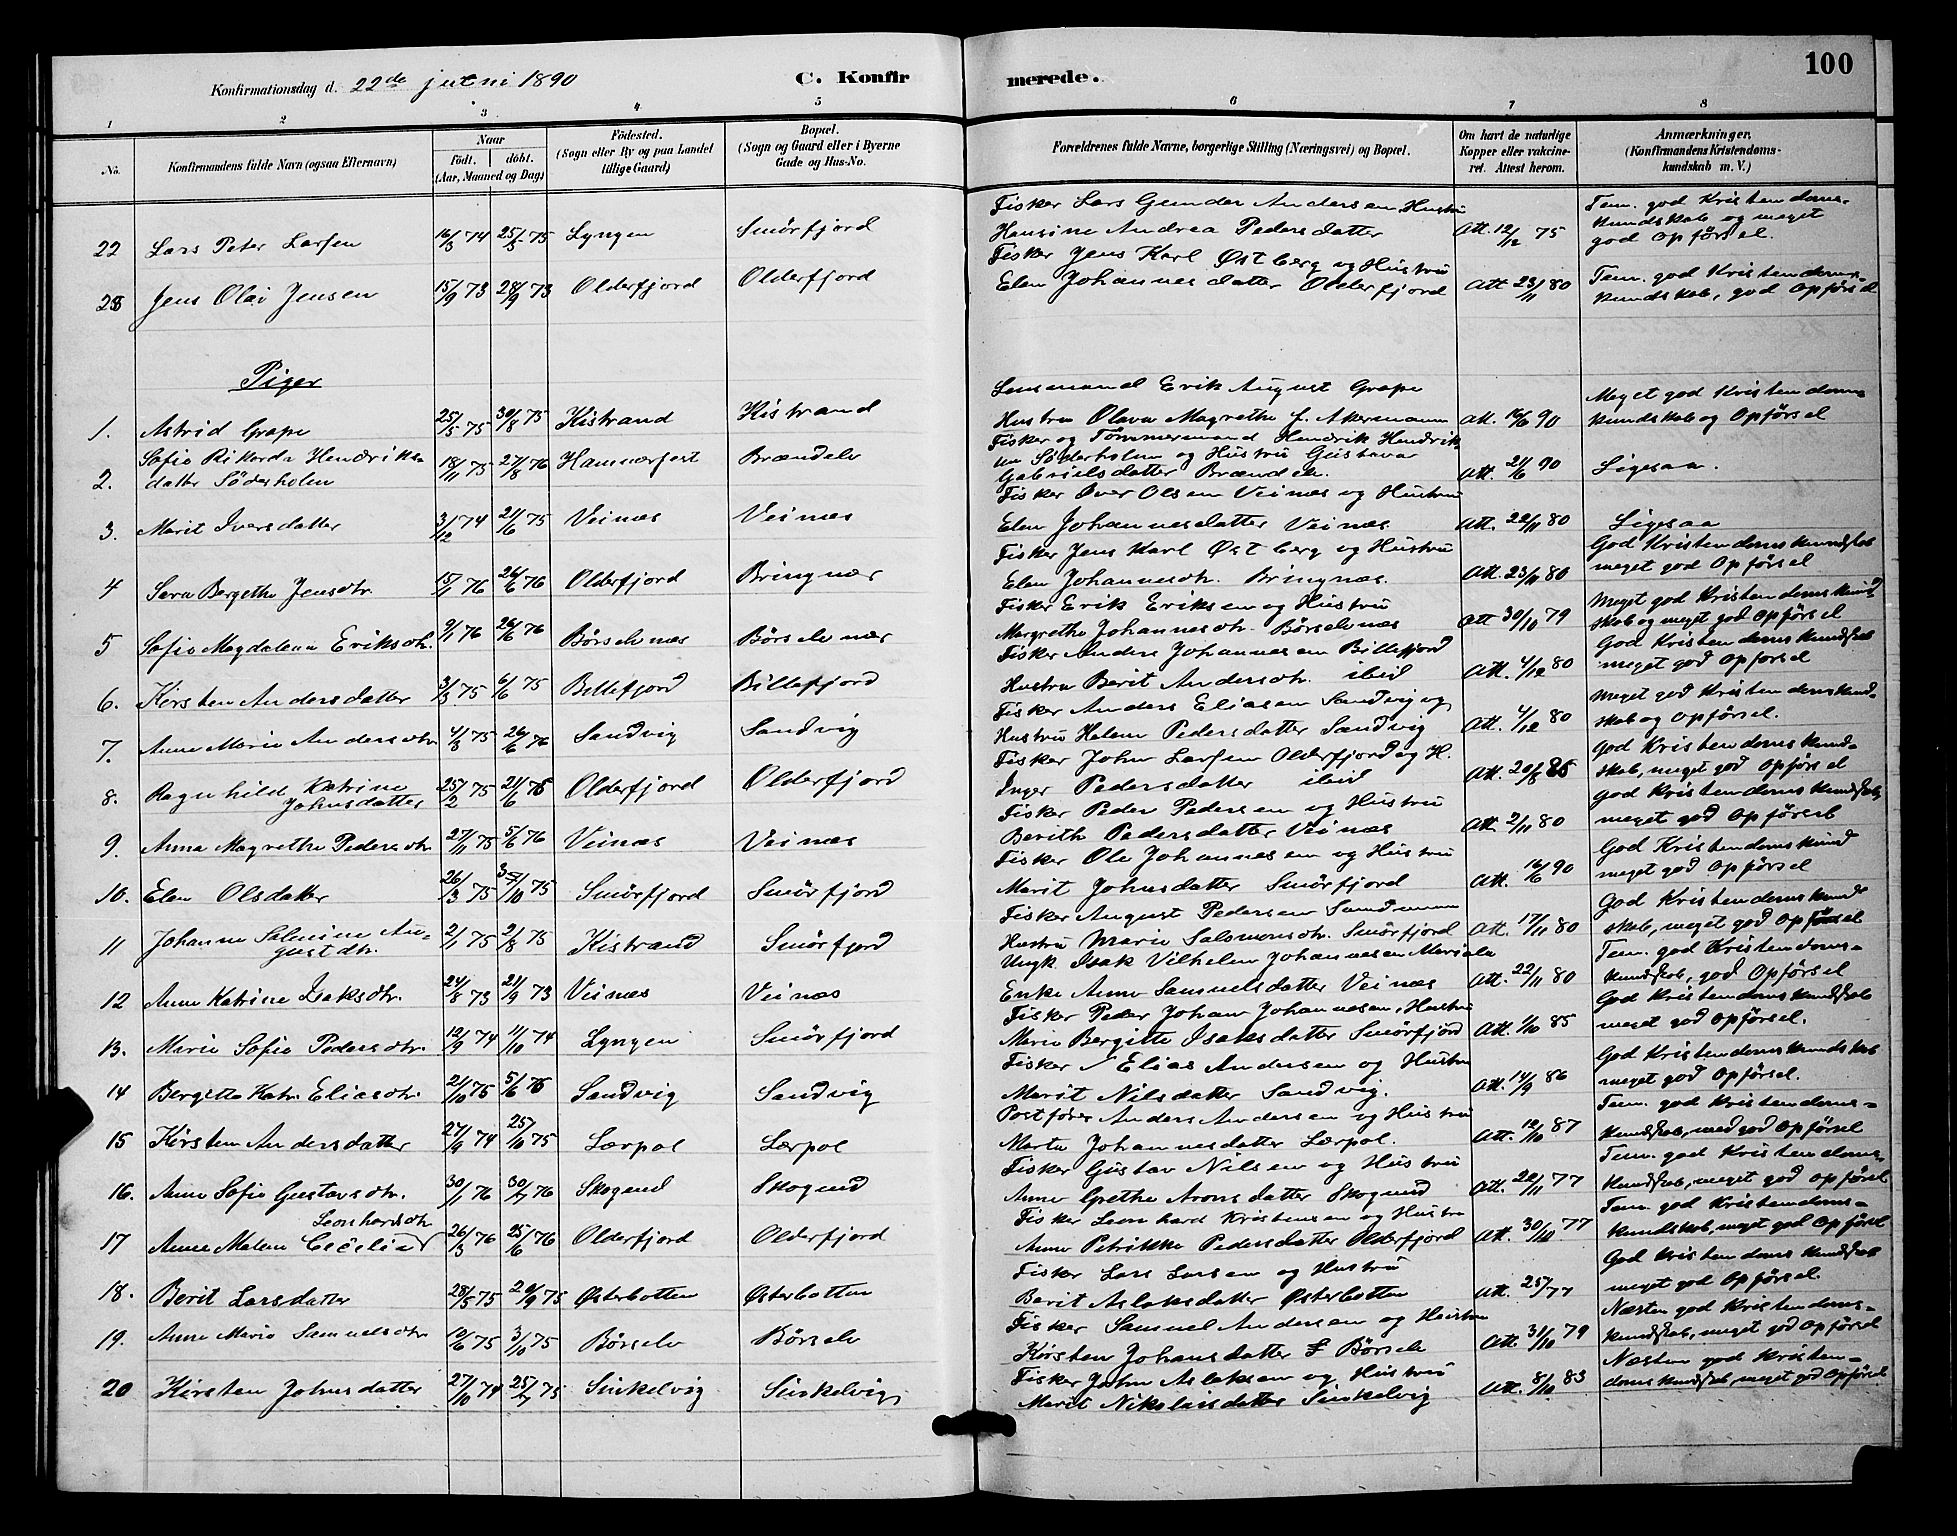 100
Konfirmationsdag d. 22de juni 1890
C. Konfirmerede.
1 2 3 4 5 6 7 8
No.
Konfirmandens fulde Navn (ogsaa Efternavn)
Naar
födt. döbt.
(Aar, Maaned og Dag)
Födested.
(Sogn eller By og paa Landet
tillige Gaard)
Bopæl.
(Sogn og Gaard eller i Byerne
Gade og Hus-No.
Forældrenes fulde Navne, borgerlige Stilling (Næringsvei) og Bopæl.
Om havt de naturlige
Kopper eller vakcine-
ret. Attest herom.
Anmærkninger.
(Konfirmandens Kristendoms-
kundskab m. V.)
Fisker Lars Gunder Andersen, Hustru
Tem. god Kristendoms-
kundskab og meget
22 Lars Peter Larsen 16/3 74 25/5 75 Lyngen Smörfjord Hansine Andrea Pedersdatter Att. 12/12 75 god Opförsel.
Fisker Jens Karl Østberg og Hustru
23 Jens Olai Jensen 15/9 73 28/9 73 Olderfjord Olderfjord Elen Johannesdatter Olderfjord Att 23/11 80 Tem. god Kristendoms-
kundskab, god Opförsel
Piger
Lensmand Erik August Grape
Meget god Kristendoms-
1. Astrid Grape 25/5 75 30/8 75 Kistrand Kistrand Hustru Olava Magrethe f. Akermann Att. 16/6 90 kundskab og Opförsel
Fisker og Tömmermand Hendrik Hendrik-
2. Sofie Rikarda Hendriks-
datter Söderholm 18/11 75 27/8 76 Hammerfest Brændelv sen Söderholm og Hustru Gustava
Gabrielsdatter Brændelv. Att. 21/6 90 Ligesaa.
Fisker Iver Olsen Veinæs og Hustru
3. Marit Iversdatter 3/12 74 21/6 75 Veinæs Veinæs Elen Johannesdatter Veinæs Att. 22/11 80 Ligesaa
Fisker Jens Karl Østberg og Hustru
God Kristendomskundskab
4 Sara Bergethe Jensdtr. 15/1 76 26/6 76 Olderfjord Bringnæs Elen Johannesdtr. Bringnæs. Att. 23/11 80 meget god Opförsel
Fisker Erik Eriksen og Hustru
Meget god Kristendomskund-
5 Sofie Magdalena Eriksdtr. 9/1 76 26/6 76 Börselvnæs Börselvnæs Margrethe Johannesdtr. Börselvnæs Att 30/10 79 skab og meget god Opförsel
Fisker Anders Johannesen Billefjord
God Kristendomskundskab
6. Kirsten Andersdatter 3/3 75 6/6 75 Billefjord Billefjord Hustru Berit Andersdtr. ibid Att. 4/12 80 meget god Opförsel
Fisker Anders Eliasen Sandvig og
Meget god Kristendomskund-
7. Anne Marie Andersdtr. 4/8 75 26/6 76 Sandvig Sandvig Hustru Malene Pedersdatter Sandvig Att. 4/12 80 skab og Opförsel.
Fisker John Larsen Olderfjord og H.
God Kristendomskund-
8. Ragnhild Katrine
Johnsdatter 25/2 75 21/6 75 Olderfjord Olderfjord Inger Pedersdatter ibid Att. 20/8 85 skab, meget god Opförsel
Fisker Peder Pedersen og Hustru
God Kristendomskundskab
9. Anna Magrethe Pedersdtr. 27/11 75 5/6 76 Veinæs Veinæs Berith Pedersdatter Veinæs Att. 2/11 80 meget god Opförsel
Fisker Ole Johannesen og Hustru
God Kristendomskund
10. Elen Olsdatter 26/3 75 3/10 75 Smörfjord Smörfjord Marit Johnsdatter Smörfjord Att. 16/6 90 meget god Opförsel
Fisker August Pedersen Sandmann
God Kristendomskund
11 Johanne Salmine Au-
gustdtr. 2/1 75 2/8 75 Kistrand Smörfjord Hustru Marie Salomonsdtr. Smörfjord Att. 17/11 80 skab, meget god Opförsel
Ungk. Isak Vilhelm Johannesen
Tem. god Kristendoms-
12 Anne Katrine Isaksdtr. 24/8 73 21/9 73 Veinæs Veinæs Enke Anne Samuelsdatter Veinæs Att. 22/11 80 kundskab, god Opförsel
Fisker Peder Johan Johannesen, Hustru
God Kristendomskundskab
13. Marie Sofie Pedersdtr. 12/9 74 11/10 74 Lyngen Smörfjord Marie Bergitte Isaksdatter Smörfjord Att. 1/10 85 meget god Opförsel.
Fisker Elias Andersen og Hustru
God Kristendomskundskab
14 Bergitte Katr. Eliasdtr. 21/10 75 5/6 76 Sandvig Sandvig Marit Nilsdatter Sandvig. Att. 14/9 86 meget god Opförsel.
Postförer Anders Andersen og Hustru
Tem. god Kristendoms-
15 Kirsten Andersdatter 27/9 74 25/10 75 Lærpol Lærpol Marta Johannesdatter Lærpol. Att. 12/10 87 kundskab, med god Opförsel
Fisker Gustav Nilsen og Hustru
Tem. god Kristendoms-
16. Anne Sofie Gustavsdtr. 30/1 76 30/7 76 Skogend Skogend Anne Grethe Aronsdatter Skogend Att. 22/11 77 kundskab, meget god Opförsel
Fisker Leonhard Kristensen og Hustru
Tem. god Kristendoms-
17 Anne Malene Cecelie Leonhardsdtr 26/3 76 25/6 76 Olderfjord Olderfjord Anne Petrikke Pedersdatter Olderfjord Att. 30/10 77 kundskab, meget god Opförsel
Fisker Lars Larsen og Hustru
God Kristendomskundskab
18. Berit Larsdatter 28/5 75 20/9 75 Østerbotten Østerbotten Berit Aslaksdatter Østerbotten Att. 25/7 77 meget god Opförsel.
Fisker Samuel Andersen og Hustru
Næsten god Kristendoms-
19. Anne Marie Samuelsdtr 12/6 75 3/10 75 Börselv Börselv Kirsten Johansdatter Börselv Att. 31/10 79 kundskab, meget god Opförsel
Fisker John Aslaksen og Hustru
Næsten god Kristen-
20 Kirsten Johnsdatter 27/10 74 25/7 75 Sinkelvig Sinkelvig Marit Nikolaisdatter Sinkelvig Att. 8/10 83 domskundskab, meget god Opförsel